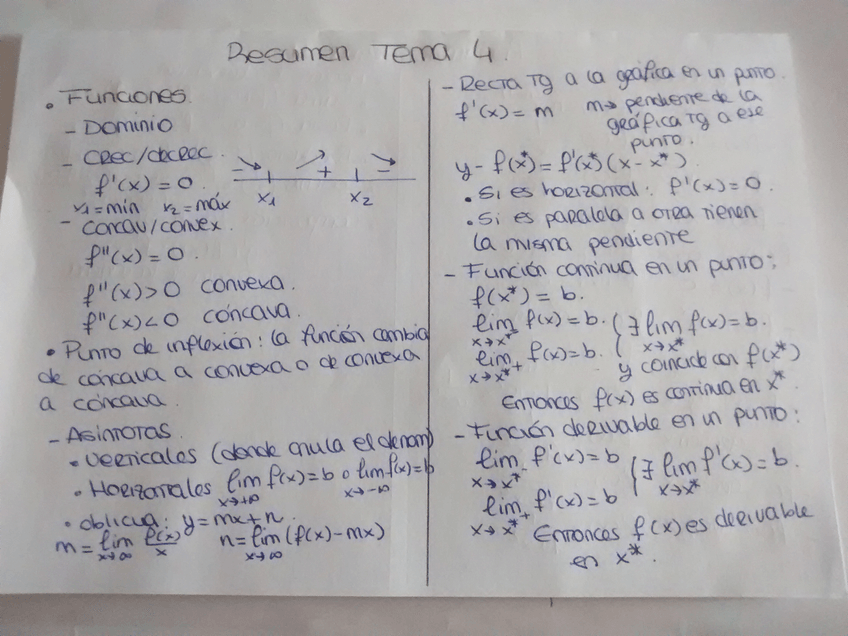 Resumen Tema 4.
• Funciones.
- Dominio
- Crec/decrec.
f'(x) = 0.
- + -
x₁ x₂
x₁ = mín x₂ = máx
- Concav/convex.
f''(x) = 0.
f''(x) > 0 convexa.
f''(x) < 0 cóncava.
• Punto de inflexión: la función cambia
de cóncava a convexa o de convexa
a cóncava.
- Asíntotas.
• Verticales (donde anula el denom)
• Horizontales lim f(x) = b o lim f(x) = b
x→+∞ x→-∞
• oblicua: y = mx + n.
m = lim f(x)/x n = lim (f(x) - mx)
x→∞ x→∞
- Recta Tg a la gráfica en un punto.
f'(x) = m m → pendiente de la
gráfica Tg a ese
punto.
y - f(x*) = f'(x*)(x - x*)
• Si es horizontal: f'(x) = 0.
• Si es paralela a otra tienen
la misma pendiente
- Función continua en un punto:
f(x*) = b.
lim f(x) = b. ( ∃ lim f(x) = b.
x→x*⁻ x→x*
lim f(x) = b. ( y coincide con f(x*)
x→x*⁺
Entonces f(x) es continua en x*
- Función derivable en un punto:
lim f'(x) = b ( ∃ lim f'(x) = b.
x→x*⁻ x→x*
lim f'(x) = b
x→x*⁺
Entonces f(x) es derivable
en x*.